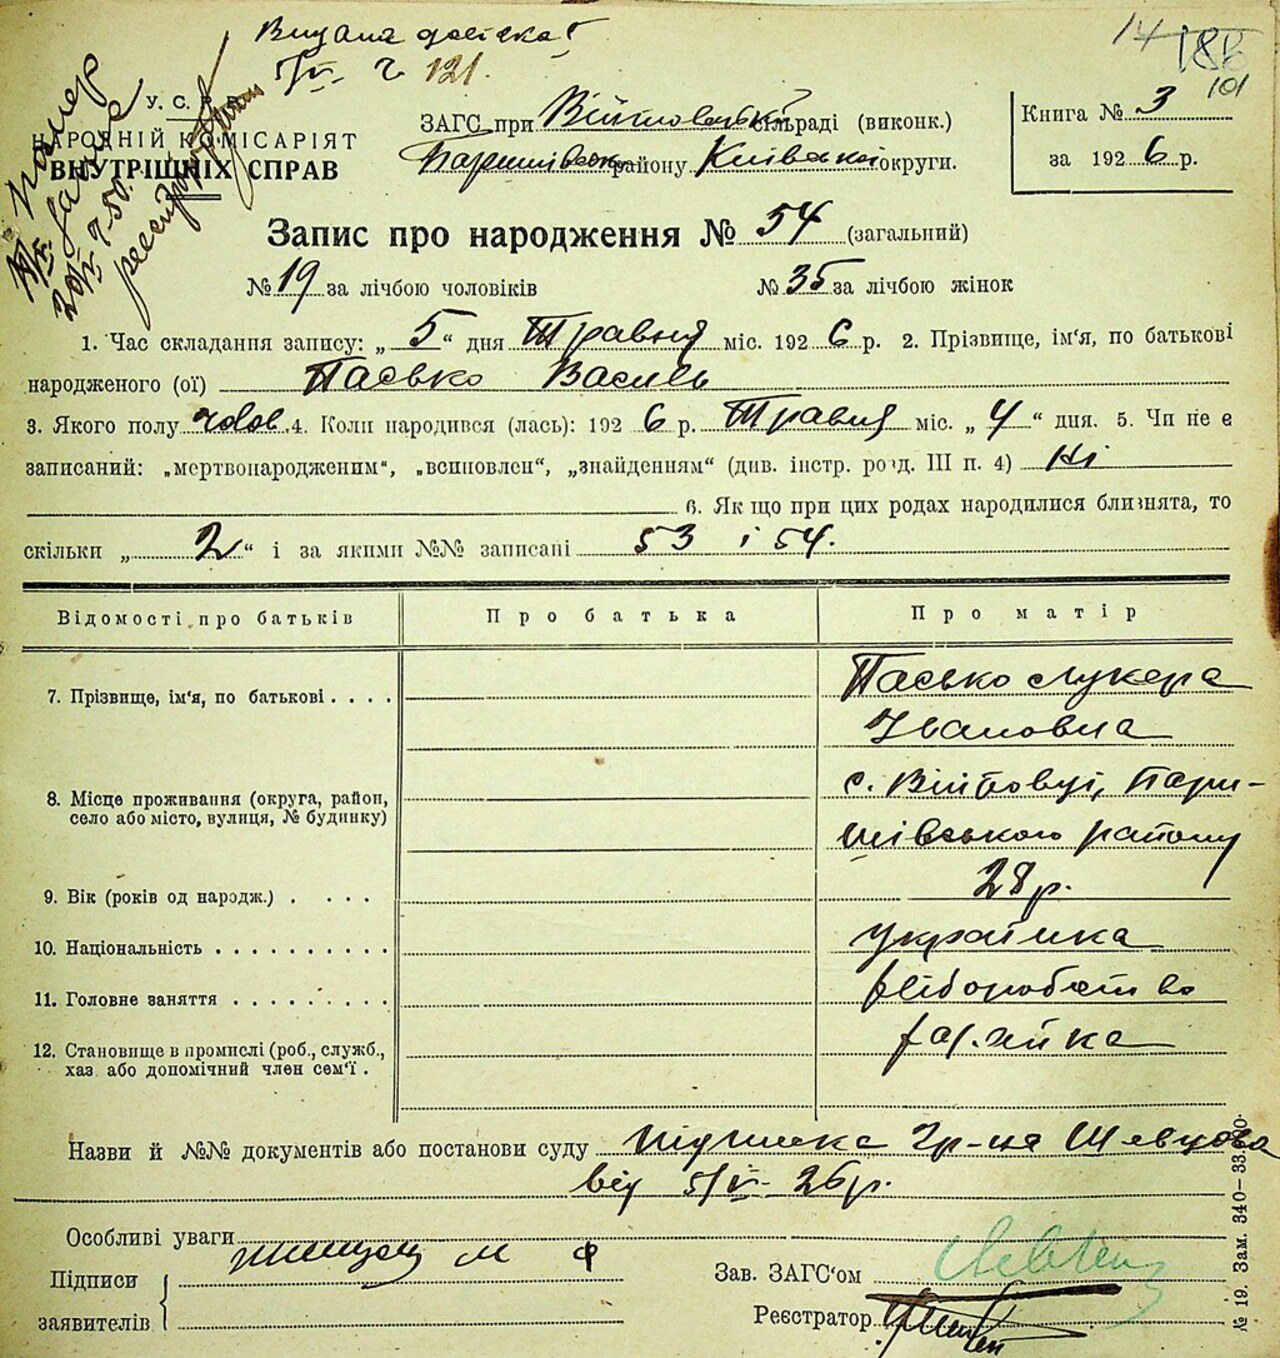 Видана довідка
5/V- 2 121.
14 188
101
У. С. Р. Р.
НАРОДНІЙ КОМІСАРІЯТ
ВНУТРІШНІХ СПРАВ
Помер
20/V 7-50.
ЗАГС при Війтовській сільраді (виконк.)
Баришівськ району Київської округи.
Книга № 3
за 1926 р.
Запис про народження № 54 (загальний)
№ 19 за лічбою чоловіків № 35 за лічбою жінок
1. Час складання запису: „5“ дня Травня міс. 1926 р. 2. Прізвище, ім'я, по батькові
народженого (ої) Пасько Василь
3. Якого полу чолов. 4. Коли народився (лась): 1926 р. Травня міс. „4“ дня. 5. Чи не є
записаний: „мертвонародженим“, „всиновлен“, „знайденням“ (див. інстр. розд. III п. 4) Ні
6. Як що при цих родах народилися близнята, то
скільки „2“ і за якими №№ записані 53 і 54.
Відомості про батьків Про батька Про матір
7. Прізвище, ім'я, по батькові . . . . Пасько Лукера
Івановна
8. Місце проживання (округа, район, с. Війтовці, Пари-
село або місто, вулиця, № будинку) шівського району
9. Вік (років од народж.) . . . . 28 р.
10. Національність . . . . . . . . . . українка
11. Головне заняття . . . . . . . . . хліборобство
12. Становище в промислі (роб., служб., хазяйка
хаз. або допомічний член сем'ї .
Назви й №№ документів або постанови суду підписка гр-на Шевцова
від 5/V- 26 р.
Особливі уваги
Підписи
заявителів
Зав. ЗАГС'ом
Реєстратор
№ 19. Зам. 340—33.000.